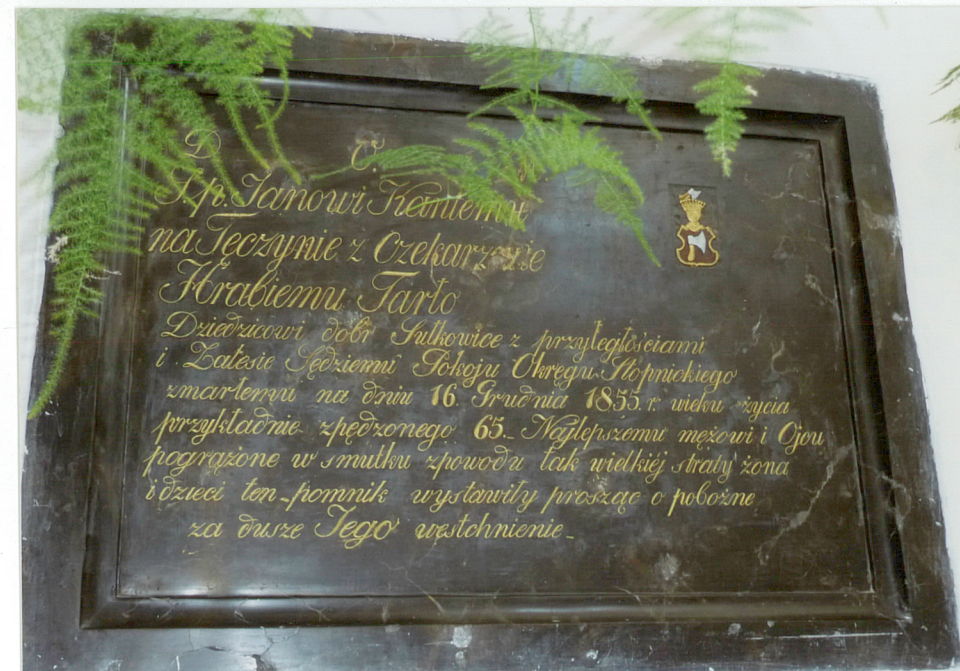 D. C.
Ś.p. Janowi Kantemu
na Tęczynie z Ozekarzowie
Hrabiemu Tarło
Dziedzicowi dobr Sułkowice z przyległościami
i Zalesie Sędziemu Pokoju Okręgu Stopnickiego
zmarłemu na dniu 16. Grudnia 1855. r. wieku życia
przykładnie zpędzonego 65._ Najlepszemu mężowi i Ojcu
pogrążone w smutku zpowodu tak wielkiéj straty żona
i dzieci ten_pomnik wystawiły prosząc o pobożne
za dusze Jego westchnienie_